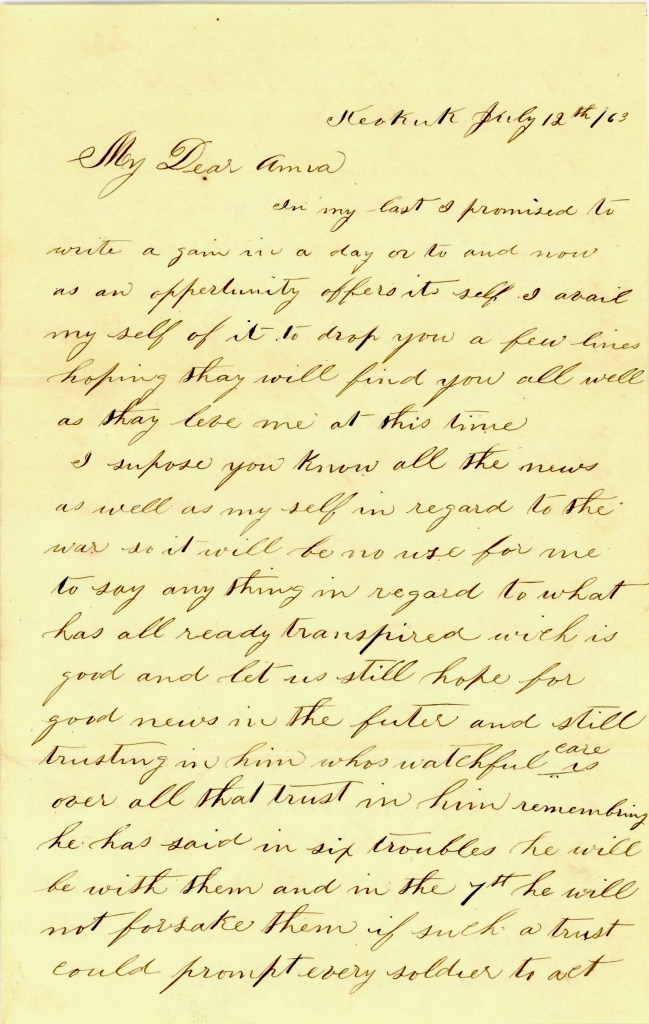 Keokuk July 12th /63
My Dear Amia
In my last I promised to
write a gain in a day or to and now
as an oppertunity offers its self I avail
my self of it to drop you a few lines
hoping thay will find you all well
as thay leve me at this time
I supose you know all the news
as well as my self in regard to the
war so it will be no use for me
to say any thing in regard to what
has all ready transpired wich is
good and let us still hope for
good news in the futer and still
trusting in him whos watchful care is
over all that trust in him remembring
he has said in six troubles he will
be with them and in the 7th he will
not forsake them if such a trust
could prompt every soldier to act